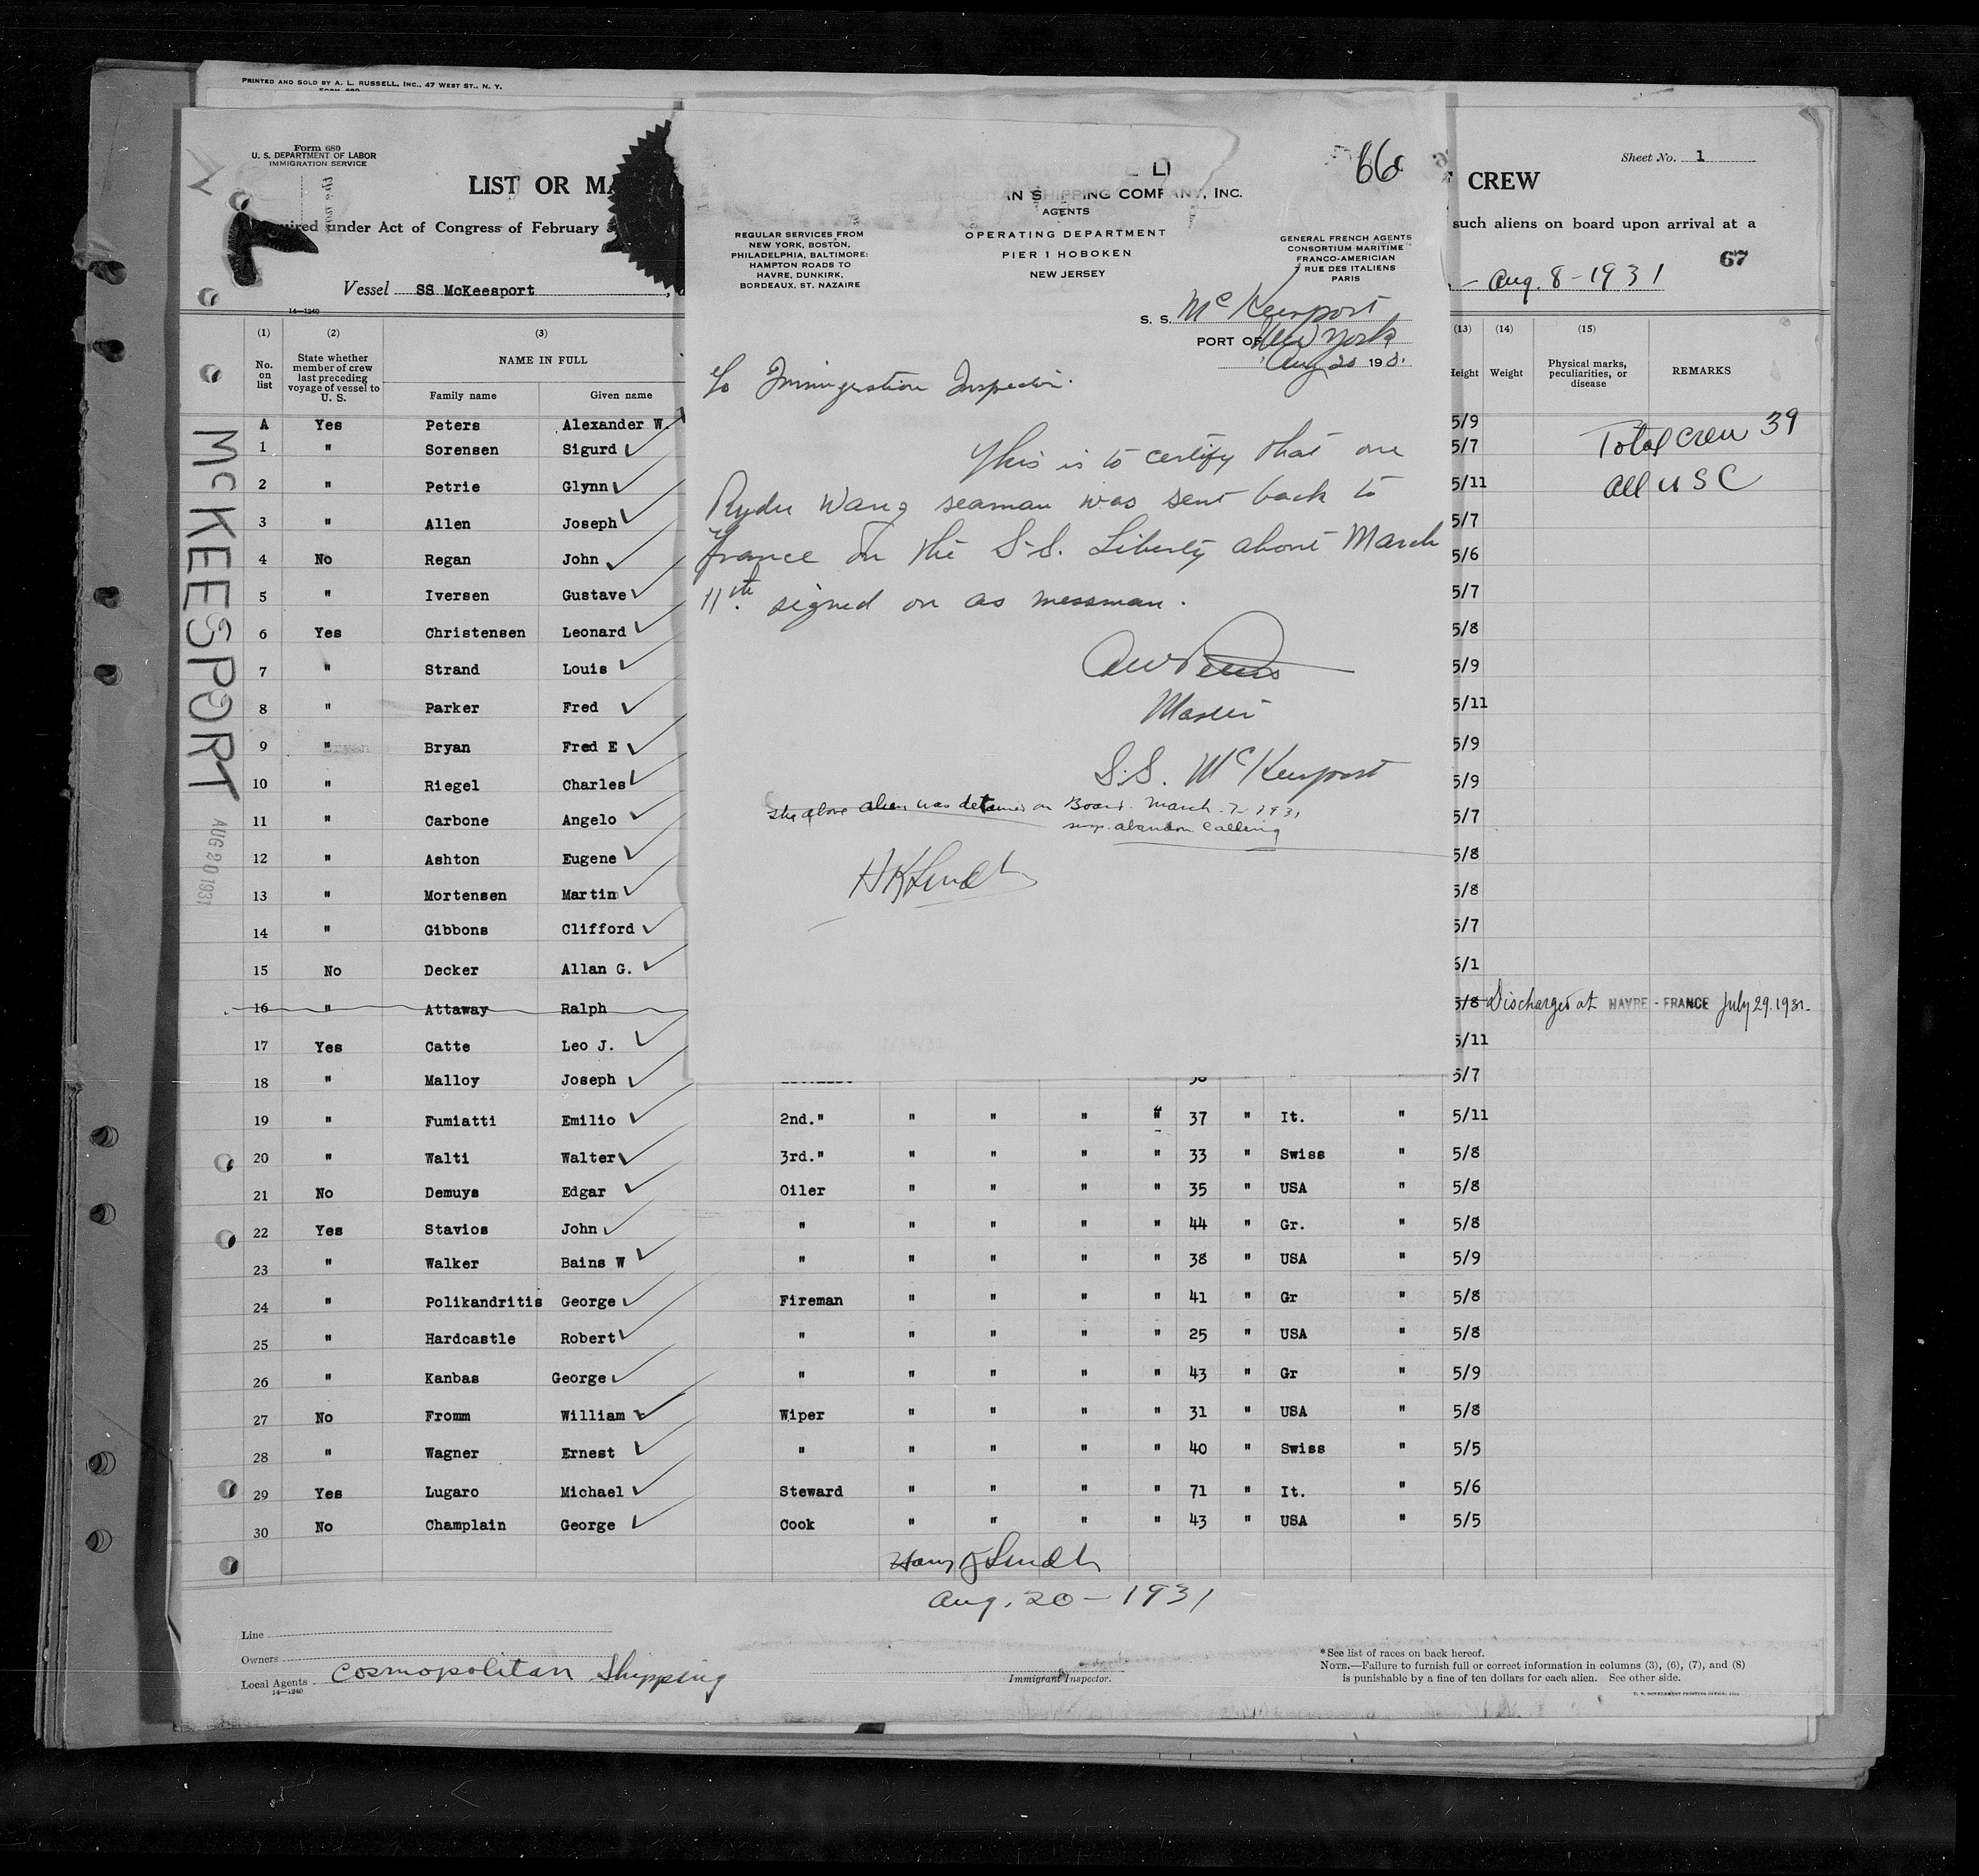 PRINTED AND SOLD BY A. L. RUSSELL, INC., 47 WEST ST., N. Y.
Form 680
U. S. DEPARTMENT OF LABOR
IMMIGRATION SERVICE
Sheet No. 1
LIST OR MA
CREW
under Act of Congress of February
such aliens on board upon arrival at a
67
Vessel SS McKeesport
Aug. 8-1931
14-1240
(1) (2) (3) (13) (14) (15)
No. on list
State whether member of crew last preceding voyage of vessel to U. S.
NAME IN FULL
Family name Given name
Height Weight
Physical marks, peculiarities, or disease
REMARKS
A Yes Peters Alexander W. 5/9
1 " Sorensen Sigurd 5/7
Total Crew 39
2 " Petrie Glynn 5/11
All U S C
3 " Allen Joseph 5/7
4 No Regan John 5/6
5 " Iversen Gustave 5/7
6 Yes Christensen Leonard 5/8
7 " Strand Louis 5/9
8 " Parker Fred 5/11
9 " Bryan Fred E 5/9
10 " Riegel Charles 5/9
11 " Carbone Angelo 5/7
12 " Ashton Eugene 5/8
13 " Mortensen Martin 5/8
14 " Gibbons Clifford 5/7
15 No Decker Allan G. 6/1
16 " Attaway Ralph 5/8 Discharged at HAVRE - FRANCE July 29. 1931-
17 Yes Catte Leo J. 5/11
18 " Malloy Joseph 5/7
19 " Fumiatti Emilio 2nd." " " " " 37 " It. " 5/11
20 " Walti Walter 3rd." " " " " 33 " Swiss " 5/8
21 No Demuys Edgar Oiler " " " " 35 " USA " 5/8
22 Yes Stavios John " " " " " 44 " Gr. " 5/8
23 " Walker Bains W " " " " " 38 " USA " 5/9
24 " Polikandritis George Fireman " " " " 41 " Gr " 5/8
25 " Hardcastle Robert " " " " " 25 " USA " 5/8
26 " Kanbas George " " " " " 43 " Gr " 5/9
27 No Fromm William Wiper " " " " 31 " USA " 5/8
28 " Wagner Ernest " " " " " 40 " Swiss " 5/5
29 Yes Lugaro Michael Steward " " " " 71 " It. " 5/6
30 No Champlain George Cook " " " " 43 " USA " 5/5
Aug. 20-1931
Line
Owners
Local Agents Cosmopolitan Shipping
14-1240
Immigrant Inspector.
*See list of races on back hereof.
NOTE.—Failure to furnish full or correct information in columns (3), (6), (7), and (8)
is punishable by a fine of ten dollars for each alien. See other side.
McKEESPORT
AUG 20 1931
66
AN SHIPPING COMPANY, INC.
AGENTS
OPERATING DEPARTMENT
PIER 1 HOBOKEN
NEW JERSEY
REGULAR SERVICES FROM
NEW YORK, BOSTON,
PHILADELPHIA, BALTIMORE:
HAMPTON ROADS TO
HAVRE, DUNKIRK,
BORDEAUX, ST. NAZAIRE
GENERAL FRENCH AGENTS
CONSORTIUM MARITIME
FRANCO-AMERICAN
7 RUE DES ITALIENS
PARIS
S. S. McKeesport
PORT OF New York
Aug 20 193
To Immigration Inspector.
This is to certify that one
Ryder Wang seaman was sent back to
France on the S.S. Liberty about March
11th. signed on as messman.
AW Peters
Master
S.S. McKeesport
The above alien was detained on Board. March. 7- 1931
abandon Calling